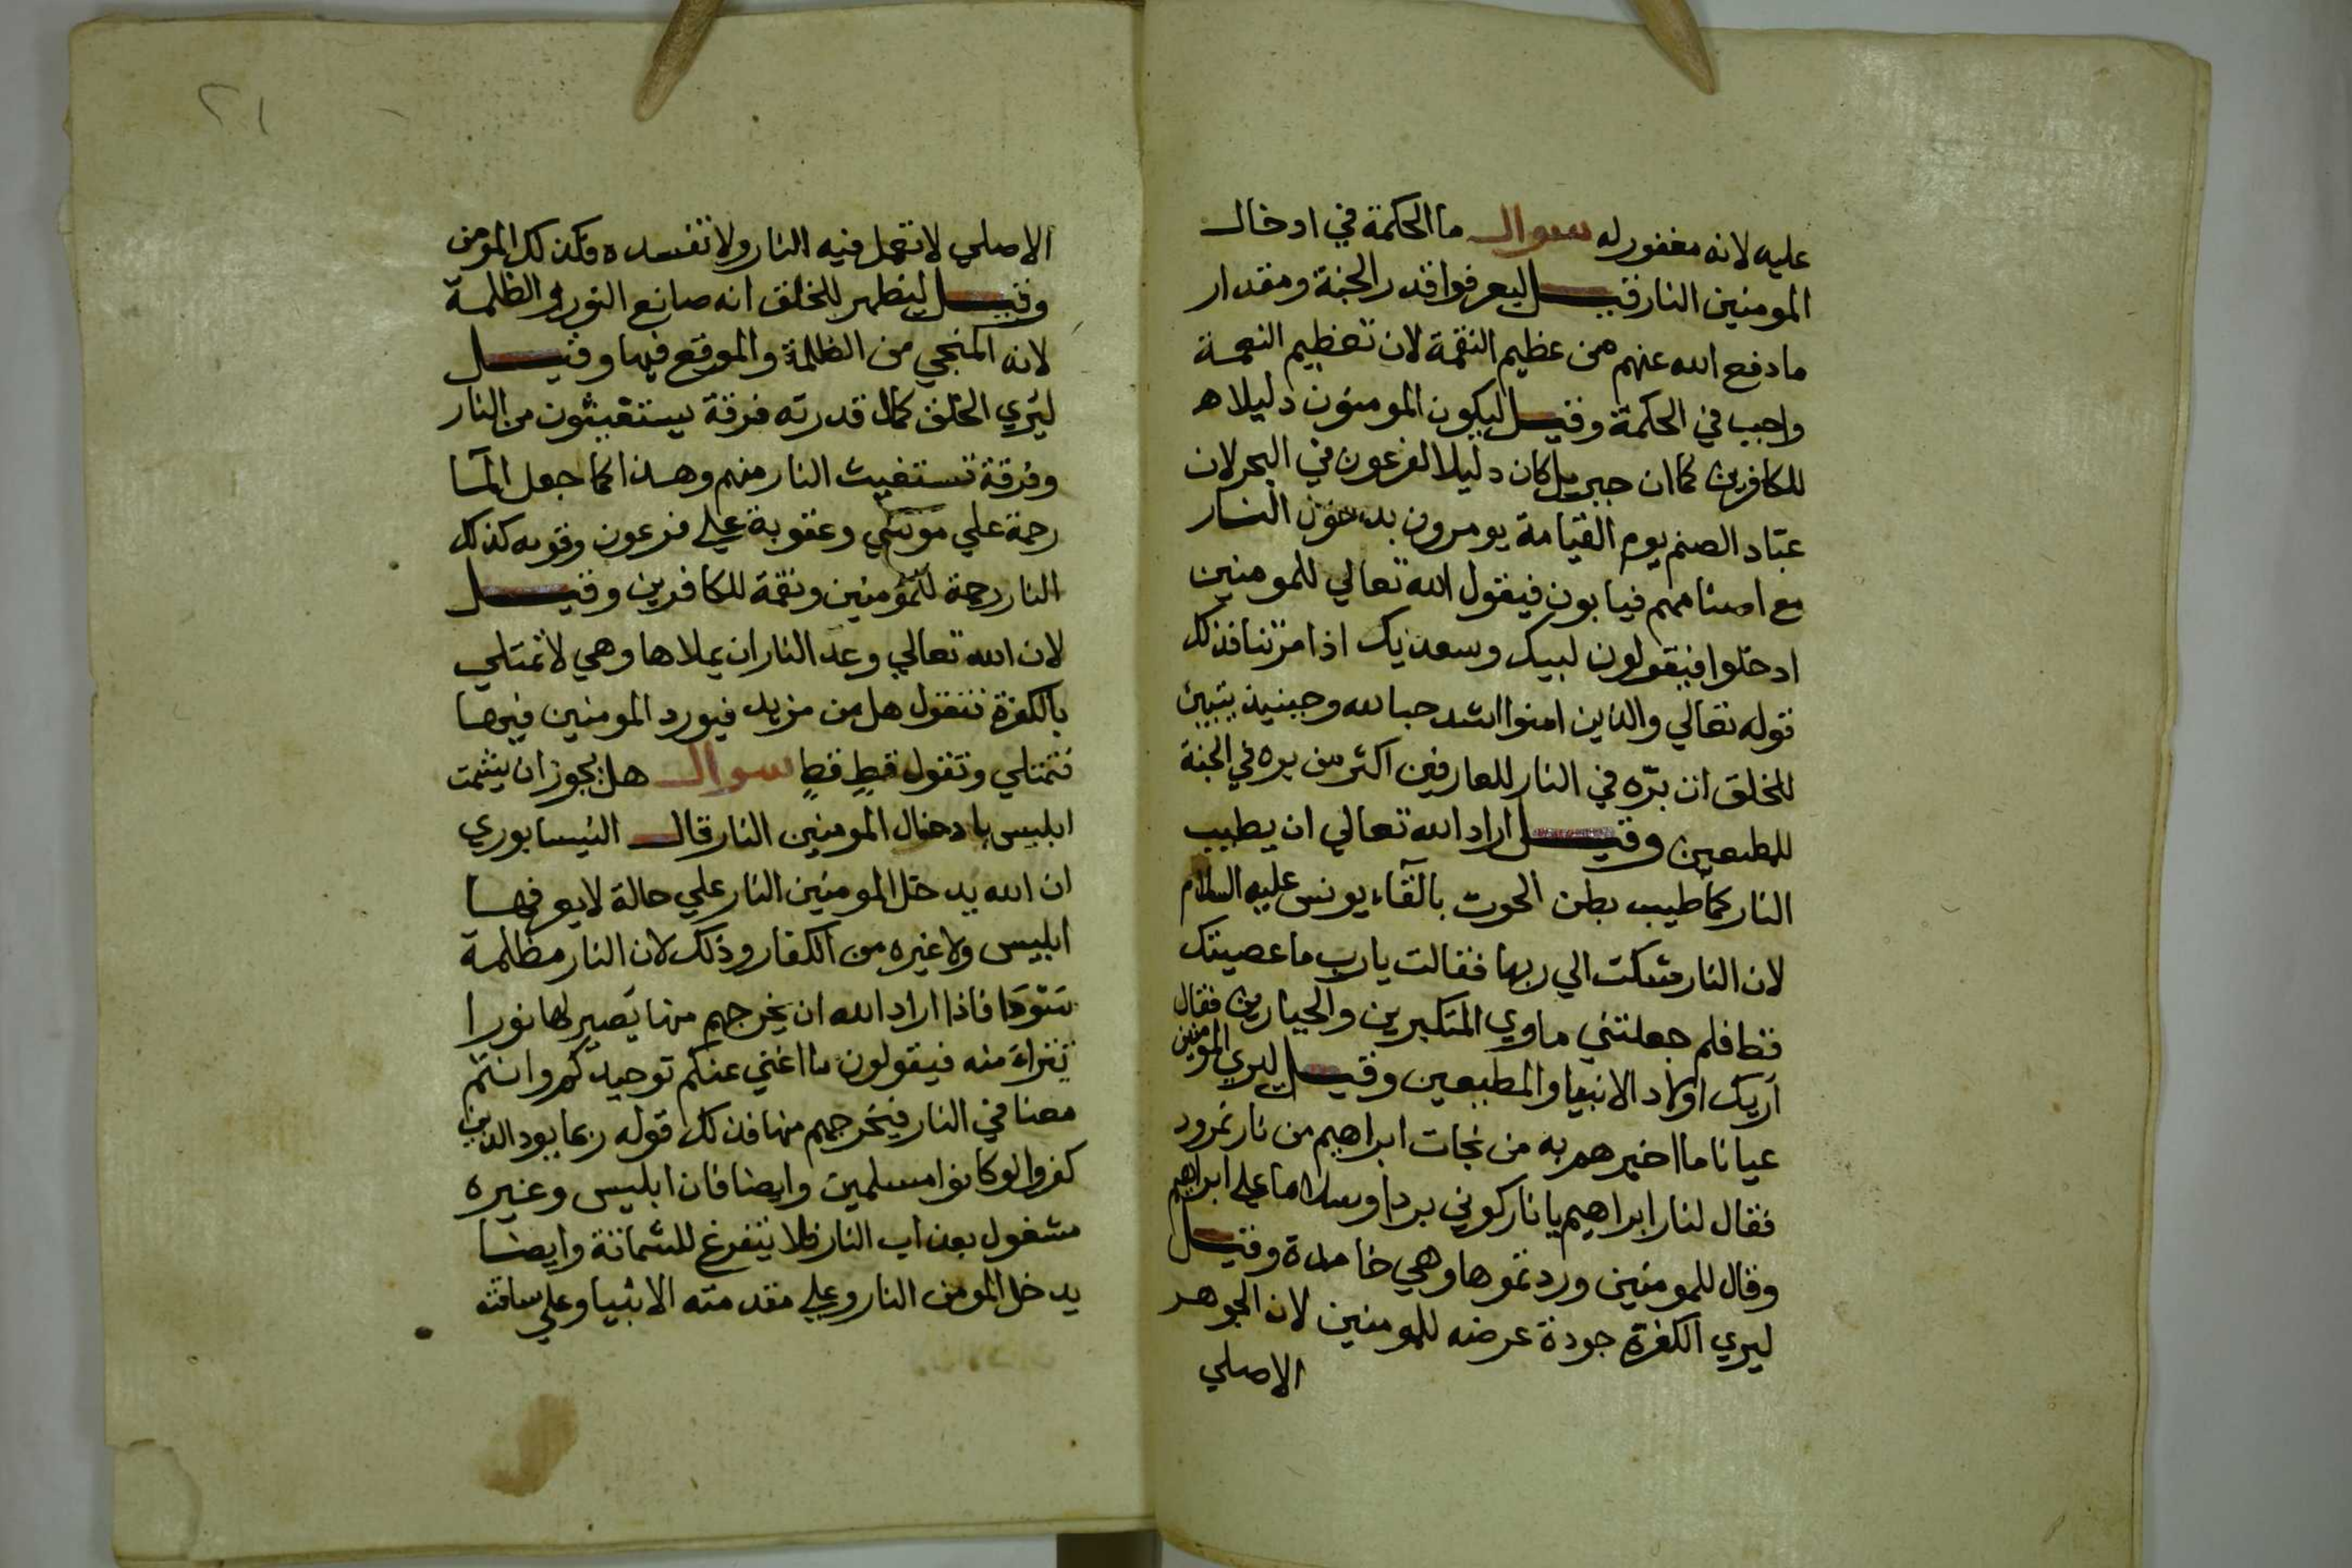 عليه لانه مغفور له سوال ما الحكمة في ادخال
المومنين النار قيل ليعرفوا قدر الجنة ومقدار
ما دفع الله عنهم من عظيم النقمة لان تعظيم النعمة
واجب في الحكمة وقيل ليكون المومنون دليلا ه
للكافرين كما ان جبريل كان دليلا لفرعون في البحر لان
عبّاد الصنم يوم القيامة يومرون بدخول النار
مع اصنامهم فيابون فيقول الله تعالي للمومنين
ادخلوا فيقولون لبيك وسعديك اذا مرتنا فذلك
قوله تعالي والذين امنوا اشد حبا لله وحينيذ يتبين
للخلق ان برّه في النار للعارفين اكثر من بره في الجنة
للمطيعين وقيل اراد الله تعالي ان يطيب
النار كما طيب بطن الحوت بالقآء يونس عليه السلام
لان النار شكت الي ربها فقالت يارب ما عصيتك
قط فلم جعلتني ماوي المتكبرين والجبارين فقال
اريك اولاد الانبيا والمطيعين وقيل ليري المومنين
عيانا ما اخبرهم به من نجات ابراهيم من نار نمرود
فقال لنار ابراهيم يا نار كوني بردا وسلاما علي ابراهيم
وقال للمومنين وردتموها وهي خامدة وقيل
ليري الكفرة جودة عرضه للمومنين لان الجوهر
الاصلي
٢١
الاصلي لا تعمل فيه النار ولا تفسده فكذلك المومن
وقيل ليظهر للخلق انه صانع النور والظلمة
لانه المنجي من الظلمة والموقع فيها وقيل
ليُري الخلق كمال قدرته فرقة يستغيثون من النار
وفرقة تستغيث النار منهم وهذا كما جعل المآ
رحمة علي موسي وعقوبة علي فرعون وقومه كذلك
النار رحمة للمؤمنين ونقمة للكافرين وقيل
لان الله تعالي وعد النار ان يملاها وهي لا تمتلي
بالكفرة فتقول هل من مزيد فيورد المومنين فيها
فتمتلي وتقول قطٍ قطٍ سوال هل يجوز ان يشمت
ابليس بادخال المومنين النار قال النيسابوري
ان الله يدخل المومنين النار علي حالة لا يعرفها
ابليس ولا غيره من الكفار وذلك لان النار مظلمة
فاذا اراد الله ان يخرجهم منها يصير لها نورا
منه فيقولون ما اغني عنكم توحيدكم وانتم
معنا في النار فيخرجهم منها فذلك قوله ربما يود الذين
كفروا لو كانوا مسلمين وايضا فان ابليس وغيره
مشغول بعذاب النار فلا يتفرغ للشماتة وايضا
يدخل المومن النار وعلي مقدمته الانبيا وعلي ساقته